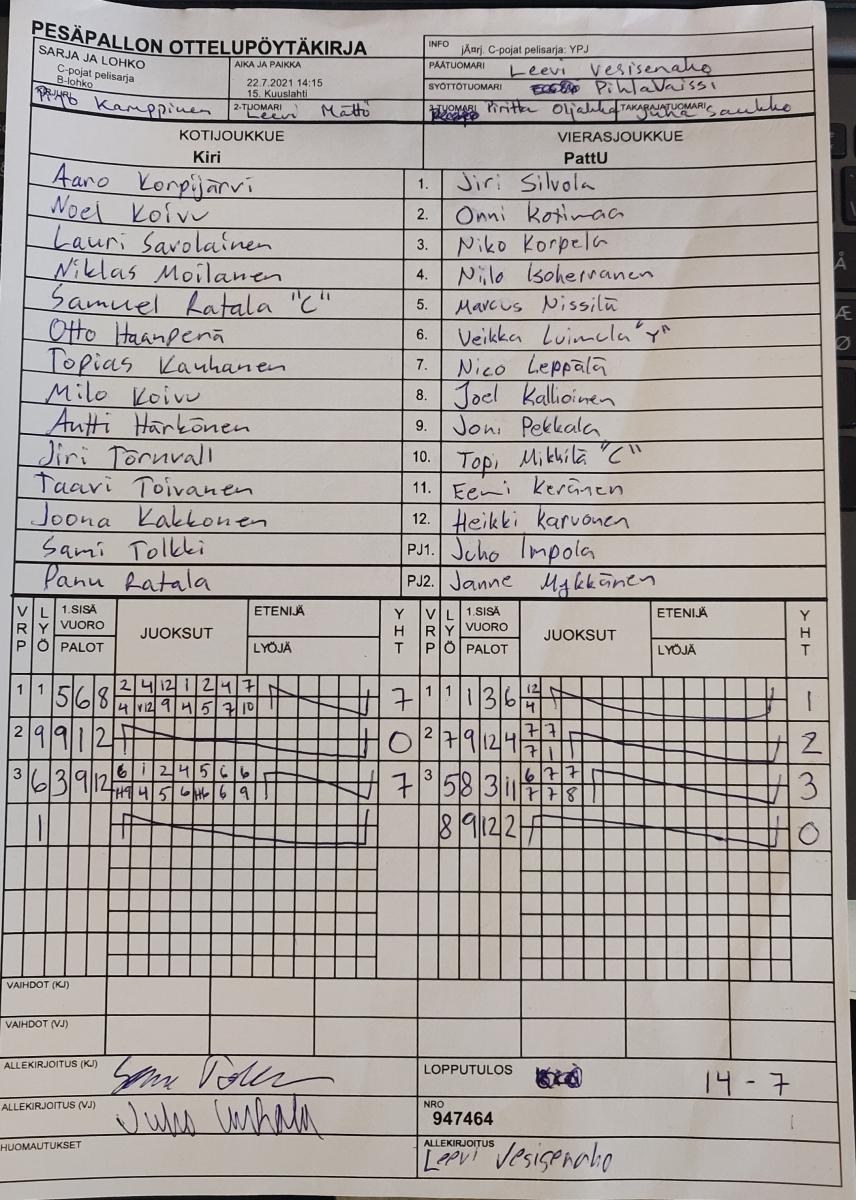 PESÄPALLON OTTELUPÖYTÄKIRJA
SARJA JA LOHKO
C-pojat pelisarja
B-lohko
AIKA JA PAIKKA
22.7.2021 14:15
15. Kuuslahti
INFO jÄ¤rj. C-pojat pelisarja: YPJ
PÄÄTUOMARI Leevi Vesisenaho
SYÖTTÖTUOMARI
Kamppinen
2-TUOMARI Leevi Mättö
3-TUOMARI Piritta
TAKARAJATUOMARI Juha Saukko
KOTIJOUKKUE
Kiri
VIERASJOUKKUE
PattU
Aaro Korpijärvi 1. Jiri Silvola
Noel Koivu 2. Onni Kotimaa
Lauri Savolainen 3. Niko Korpela
Niklas Moilanen 4. Niilo Isoherranen
Samuel Ratala "C" 5. Marcus Nissilä
Otto Haanperä 6. Veikka Luimula "Y"
Topias Kauhanen 7. Nico Leppälä
Milo Koivu 8. Joel Kallioinen
Antti Härkönen 9. Joni Pekkala
Jiri Törnvall 10. Topi Mikkilä "C"
Taavi Toivanen 11. Eemi Keränen
Joona Kakkonen 12. Heikki Karvonen
Sami Tolkki PJ1. Juho Impola
Panu Ratala PJ2. Janne Mykkänen
VRP LYÖ 1.SISÄ VUORO PALOT JUOKSUT ETENIJÄ LYÖJÄ YHT VRP LYÖ 1.SISÄ VUORO PALOT JUOKSUT ETENIJÄ LYÖJÄ YHT
1 1 5 6 8 2 4 12 1 2 4 7 7 1 1 1 3 6 12 1
4 v12 9 4 5 7 10 4
2 9 9 1 2 0 2 7 9 12 4 7 7 2
7 1
3 6 3 9 12 6 1 2 4 5 6 6 7 3 5 8 3 11 6 7 7 3
H9 4 5 6 H6 6 9 7 7 8
1 8 9 12 2 0
VAIHDOT (KJ)
VAIHDOT (VJ)
ALLEKIRJOITUS (KJ)
LOPPUTULOS 14 - 7
ALLEKIRJOITUS (VJ)
NRO
947464
HUOMAUTUKSET
ALLEKIRJOITUS
Leevi Vesisenaho